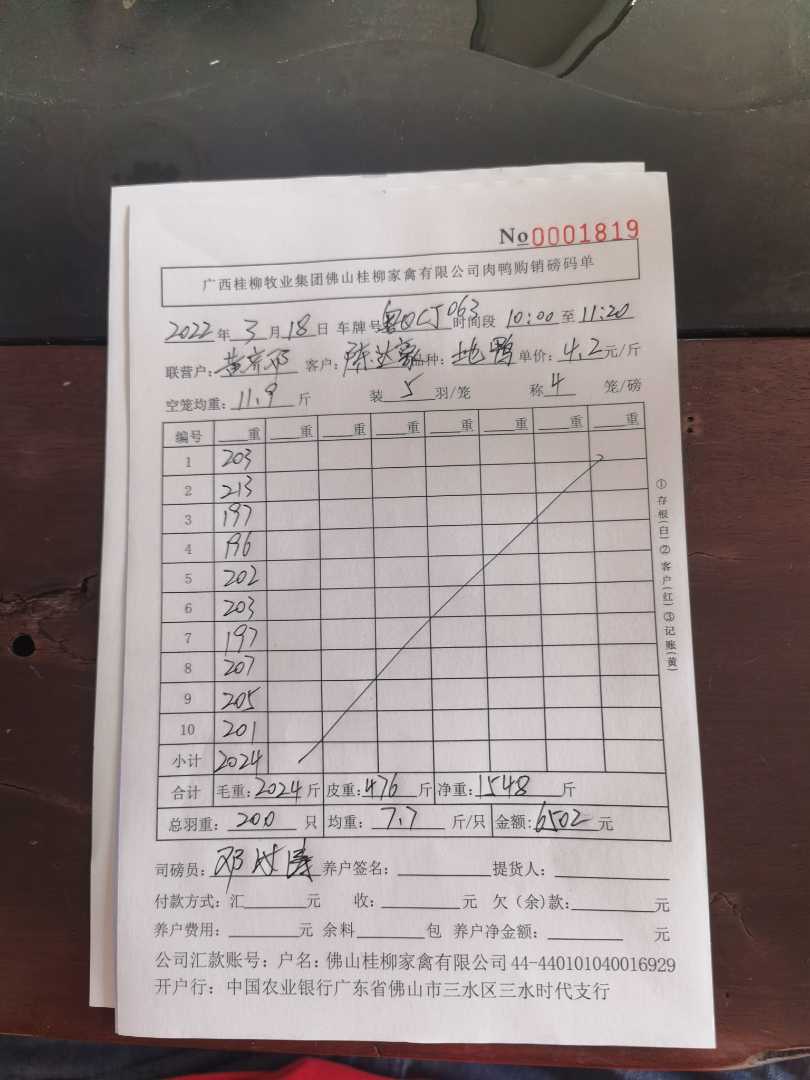 No 0001819
广西桂柳牧业集团佛山桂柳家禽有限公司肉鸭购销磅码单
2022年3月18日 车牌号粤QCJ063时间段 10:00至11:20
联营户: 客户:陈达豪品种:地鸭 单价:4.2元/斤
空笼均重:11.9斤 装5羽/笼 称4笼/磅
编号 重 重 重 重 重 重 重 重
1 203
2 213
3 197
4 196
5 202
6 203
7 197
8 207
9 205
10 201
小计 2024
合计 毛重:2024斤 皮重:476斤 净重:1548斤
总羽重:200只 均重:7.7斤/只 金额:6502元
司磅员:邓 养户签名: 提货人:
付款方式:汇 元 收: 元 欠(余)款: 元
养户费用: 元 余料 包 养户净金额: 元
公司汇款账号:户名:佛山桂柳家禽有限公司44-440101040016929
开户行:中国农业银行广东省佛山市三水区三水时代支行
①存根(白)②客户(红)③记账(黄)